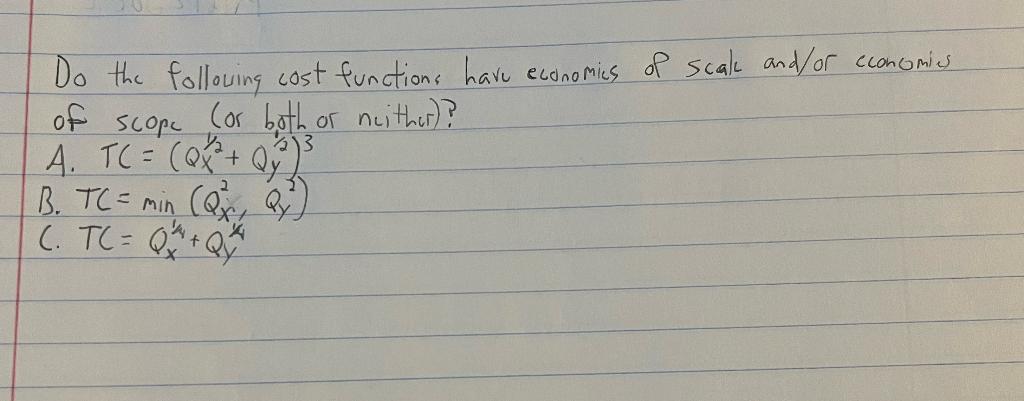 Do the following cost functions have economics of scale and/or economics
of scope (or both or neither)?
A. TC = (Qx^1/2 + Qy^1/2)^3
B. TC = min (Qx^2, Qy^2)
C. TC = Qx^1/4 + Qy^1/4